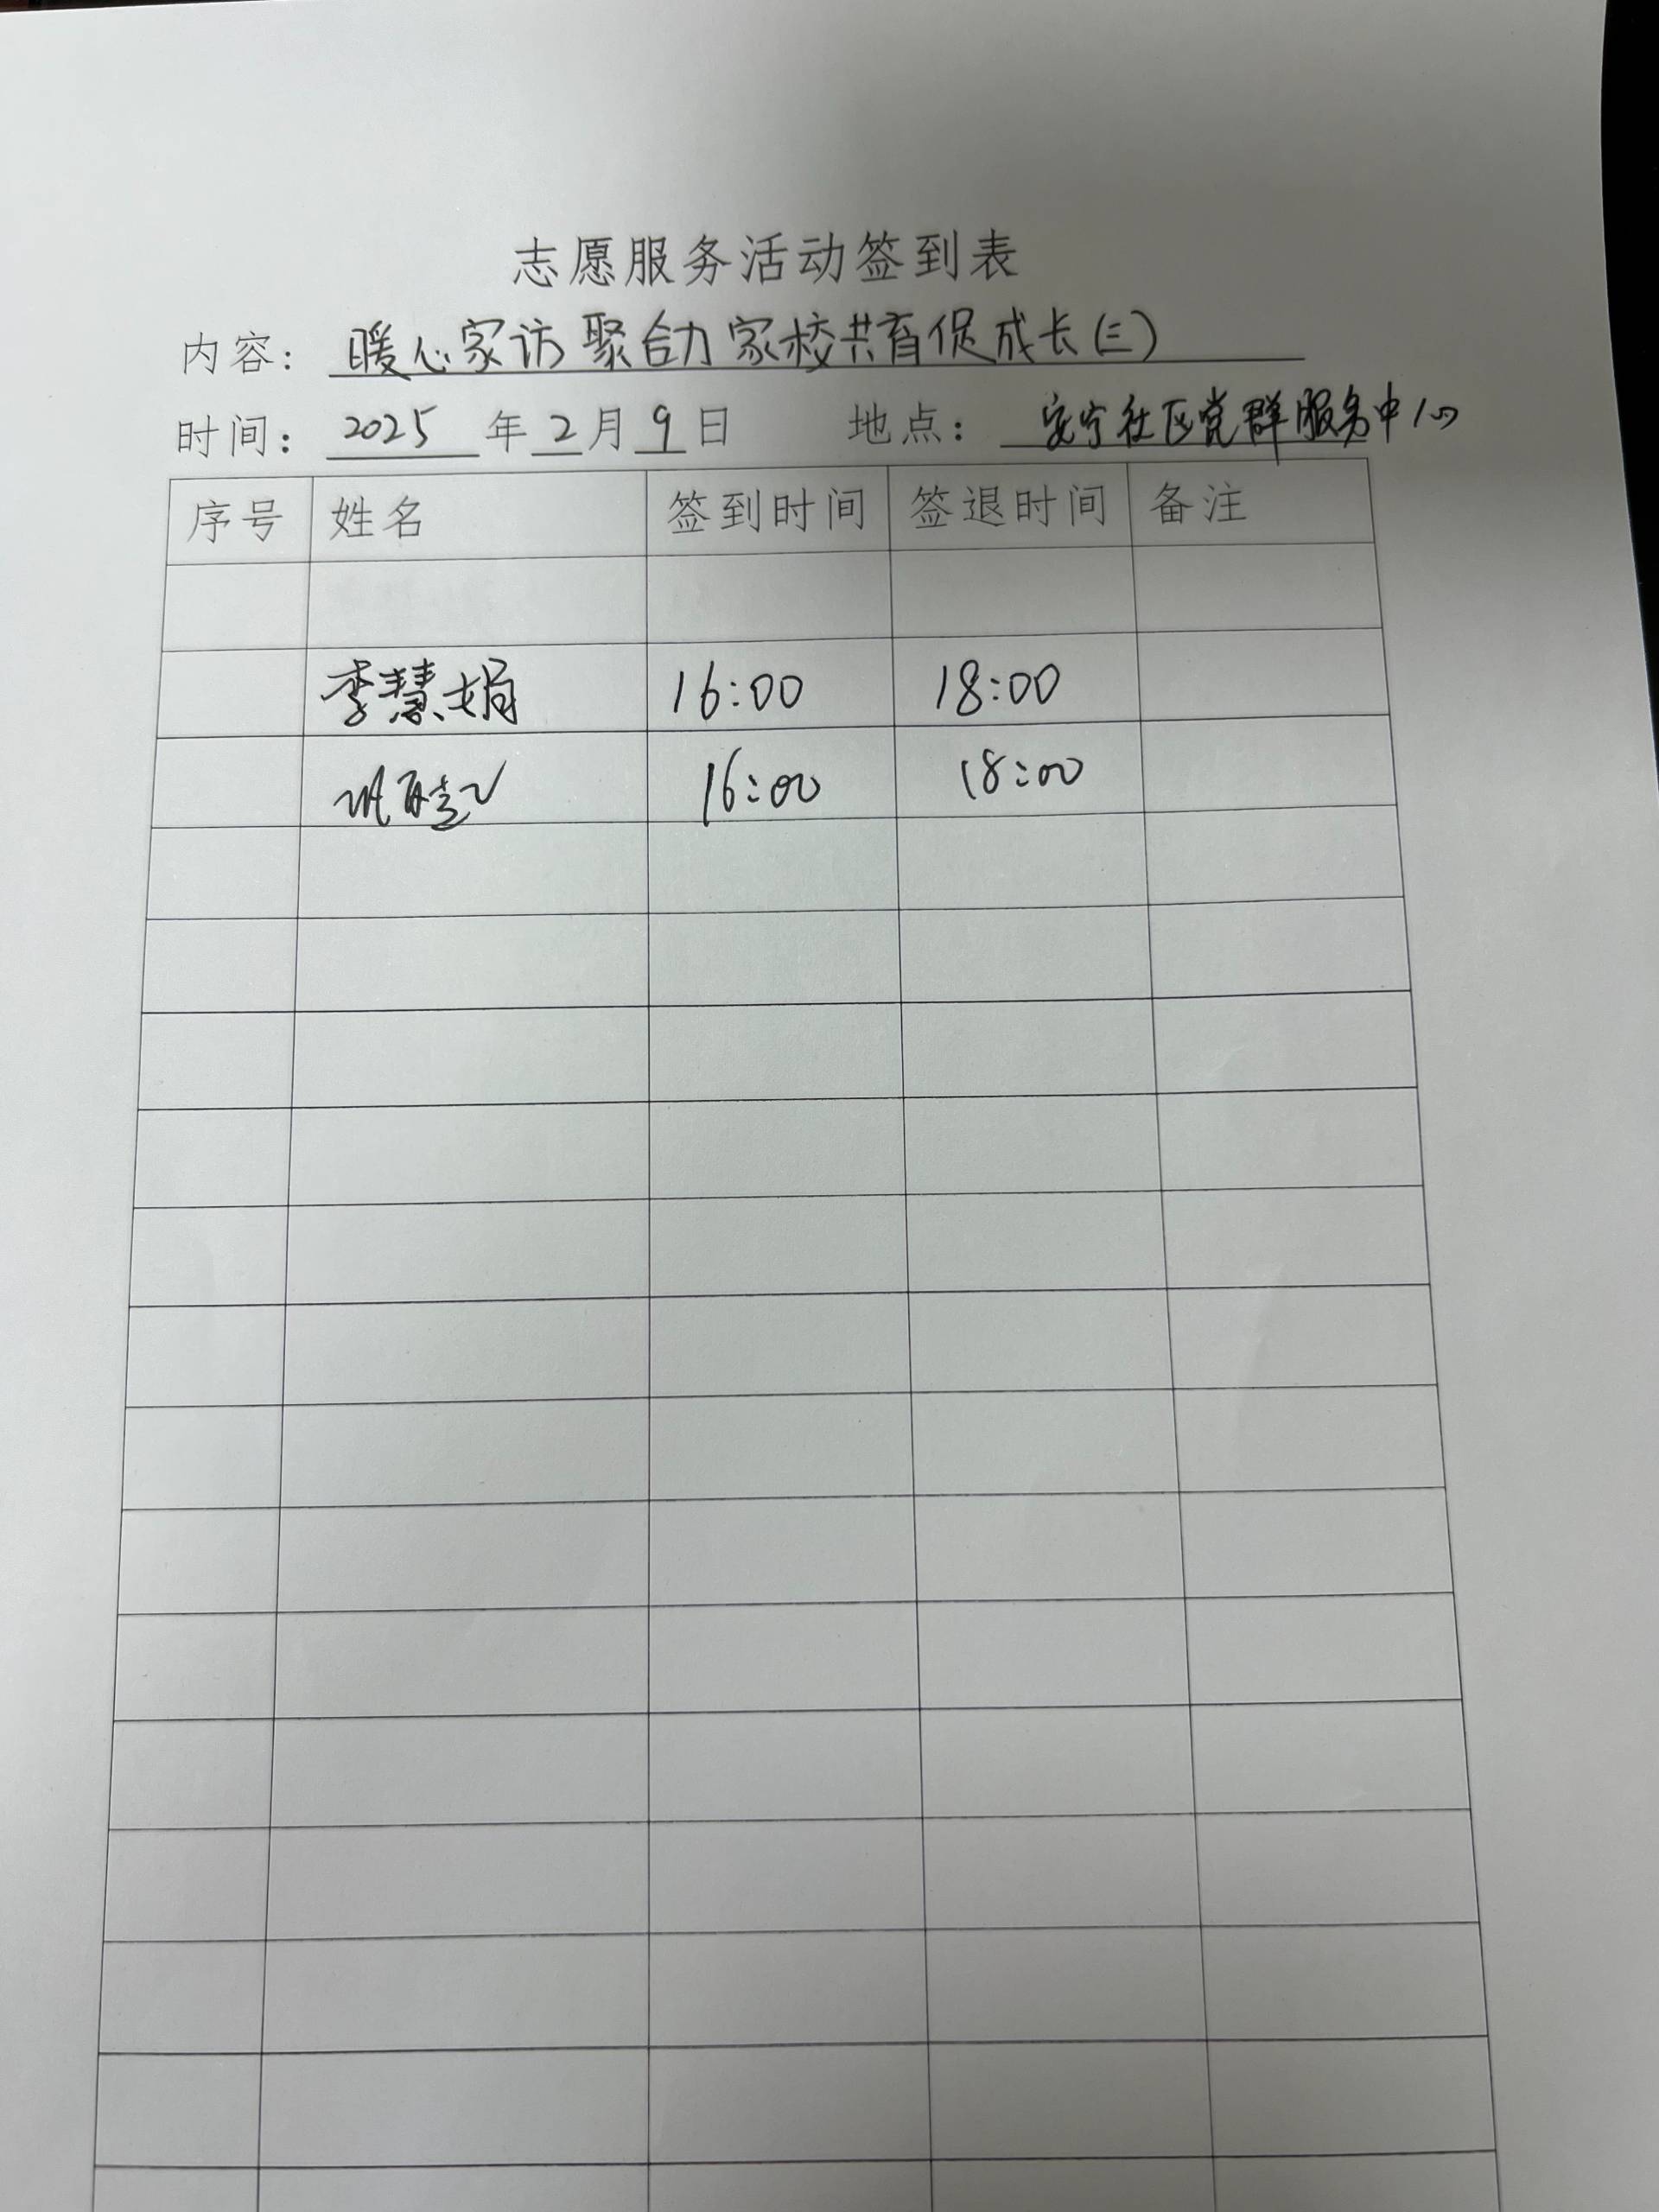 志愿服务活动签到表
内容: 暖心家访 聚合力 家校共育促成长(三)
时间: 2025 年 2 月 9 日 地点: 安宁社区党群服务中心
序号 姓名 签到时间 签退时间 备注
李慧娟 16:00 18:00
16:00 18:00